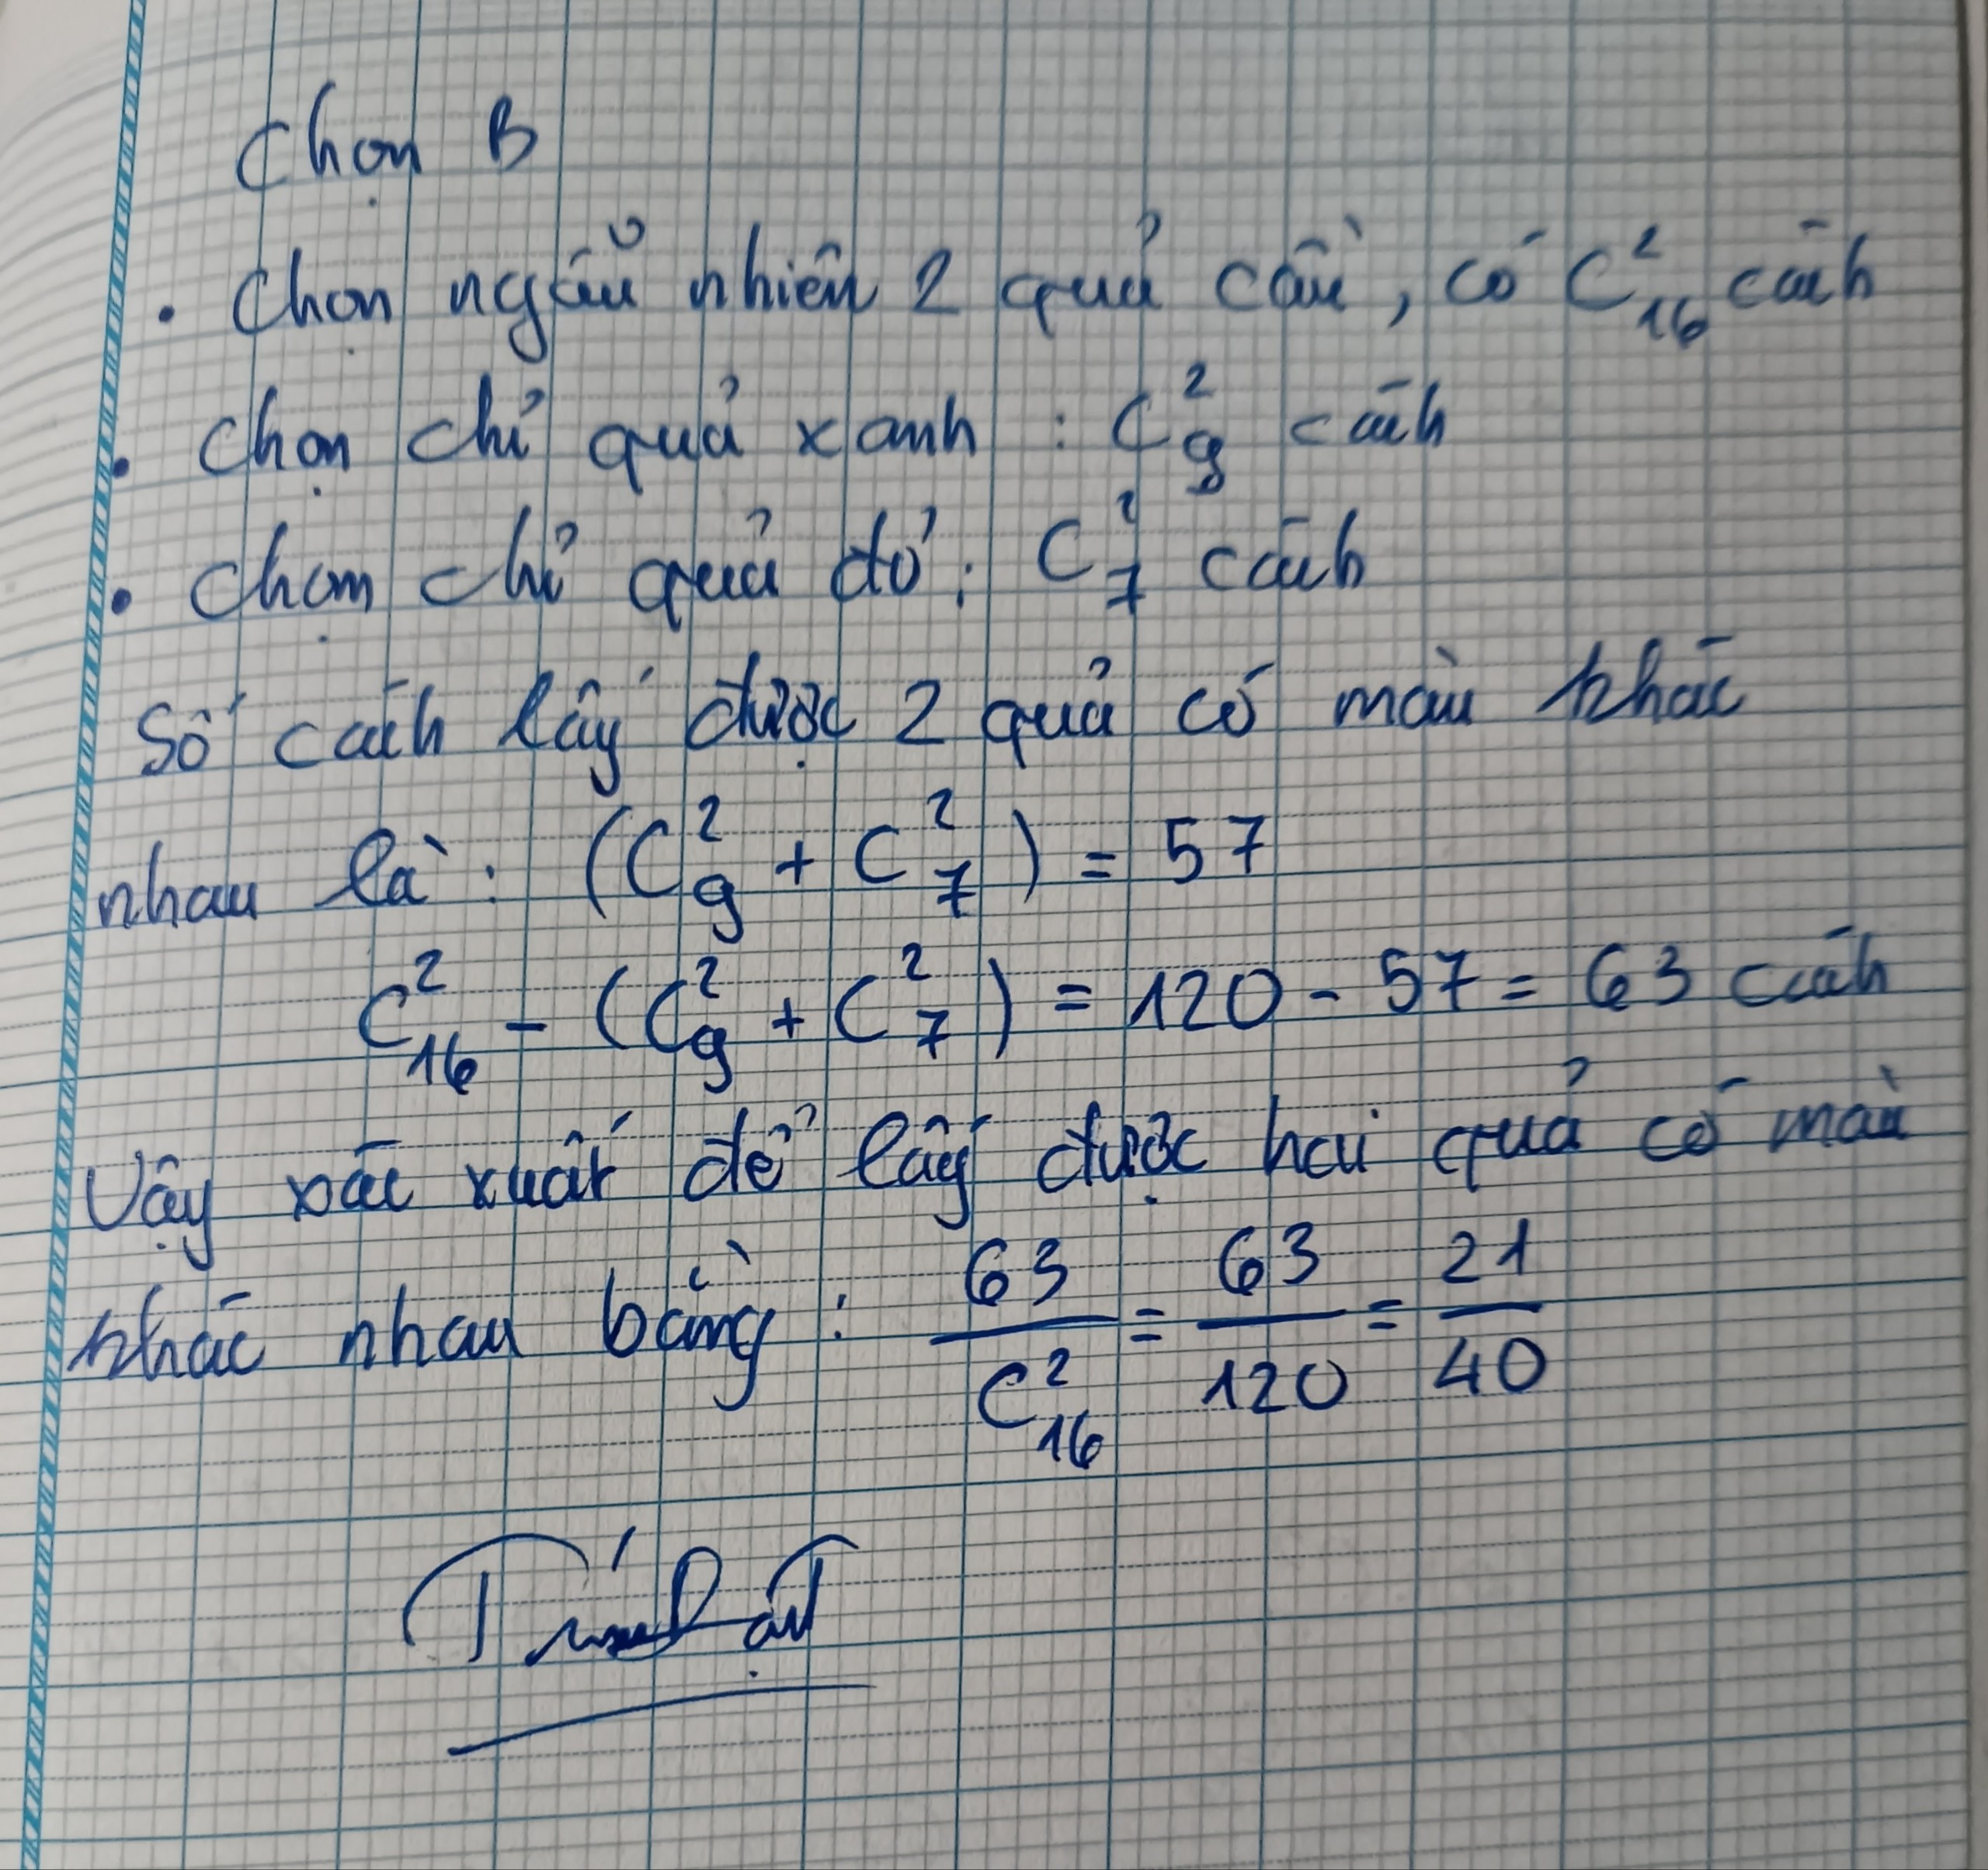 Chọn B
. Chọn ngẫu nhiên 2 quả cầu, có C²₁₆ cách
. Chọn chỉ quả xanh : C²₉ cách
. Chọn chỉ quả đỏ : C²₇ cách
Số cách lấy được 2 quả có màu khác
nhau là : (C²₉ + C²₇) = 57
C²₁₆ - (C²₉ + C²₇) = 120 - 57 = 63 cách
Vậy xác xuất để lấy được hai quả có màu
khác nhau bằng : 63/C²₁₆ = 63/120 = 21/40